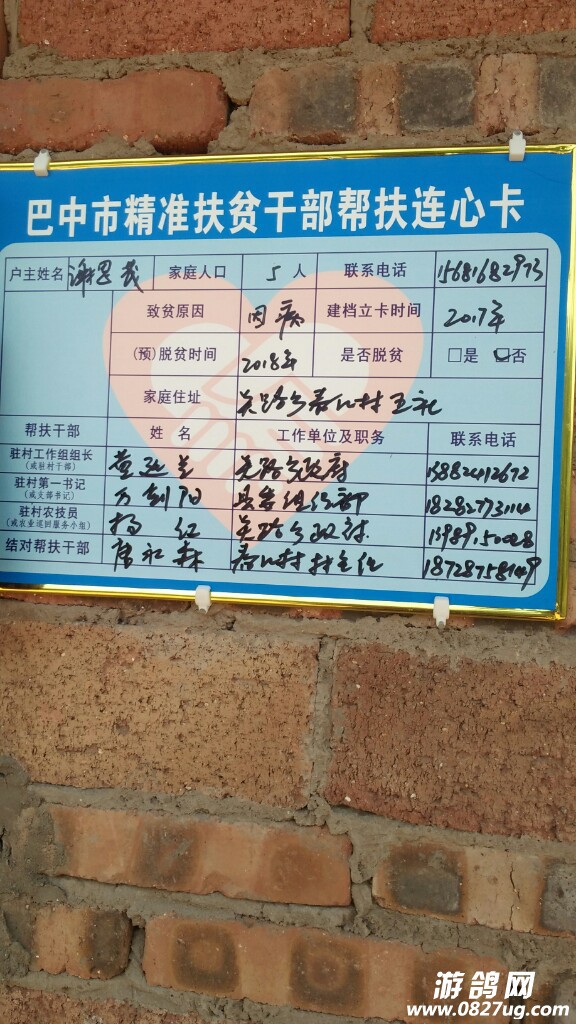 巴中市精准扶贫干部帮扶连心卡
户主姓名 谢 家庭人口 5 人 联系电话 15681682973
致贫原因 因病 建档立卡时间 2017年
(预)脱贫时间 2018年 是否脱贫 □是 □否
家庭住址 关路乡 村 社
帮扶干部 姓 名 工作单位及职务 联系电话
驻村工作组组长 关路乡政府 15882412672
(或驻村干部)
驻村第一书记 万剑 县委组织部
(或支部书记)
驻村农技员 杨 红 关路乡政府
(或农业巡回服务小组)
结对帮扶干部 唐 森 村村主任
游鸽网
www.0827ug.com